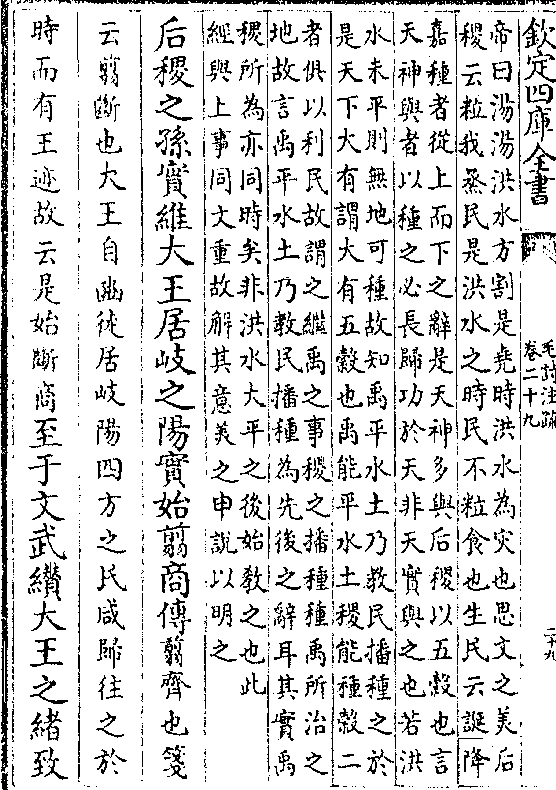 欽定四庫全書
毛詩注疏
卷二十九
二十九
帝曰湯湯洪水方割是堯時洪水為灾也思文之美后
稷云粒我烝民是洪水之時民不粒食也生民云誕降
嘉種者從上而下之辭是天神多與后稷以五穀也言
天神與者以種之必長歸功於天非天實與之也若洪
水未平則無地可種故知禹平水土乃教民播種之於
是天下大有謂大有五穀也禹能平水土稷能種穀二
者俱以利民故謂之繼禹之事稷之播種種禹所治之
地故言禹平水土乃教民播種為先後之辭耳其實禹
稷所為亦同時矣非洪水大平之後始教之也此
經與上事同文重故解其意美之申說以明之
后稷之孫實維大王居岐之陽實始翦商傳翦齊也箋
云翦斷也大王自豳徙居岐陽四方之民咸歸往之於
時而有王迹故云是始斷商至于文武纘大王之緒致